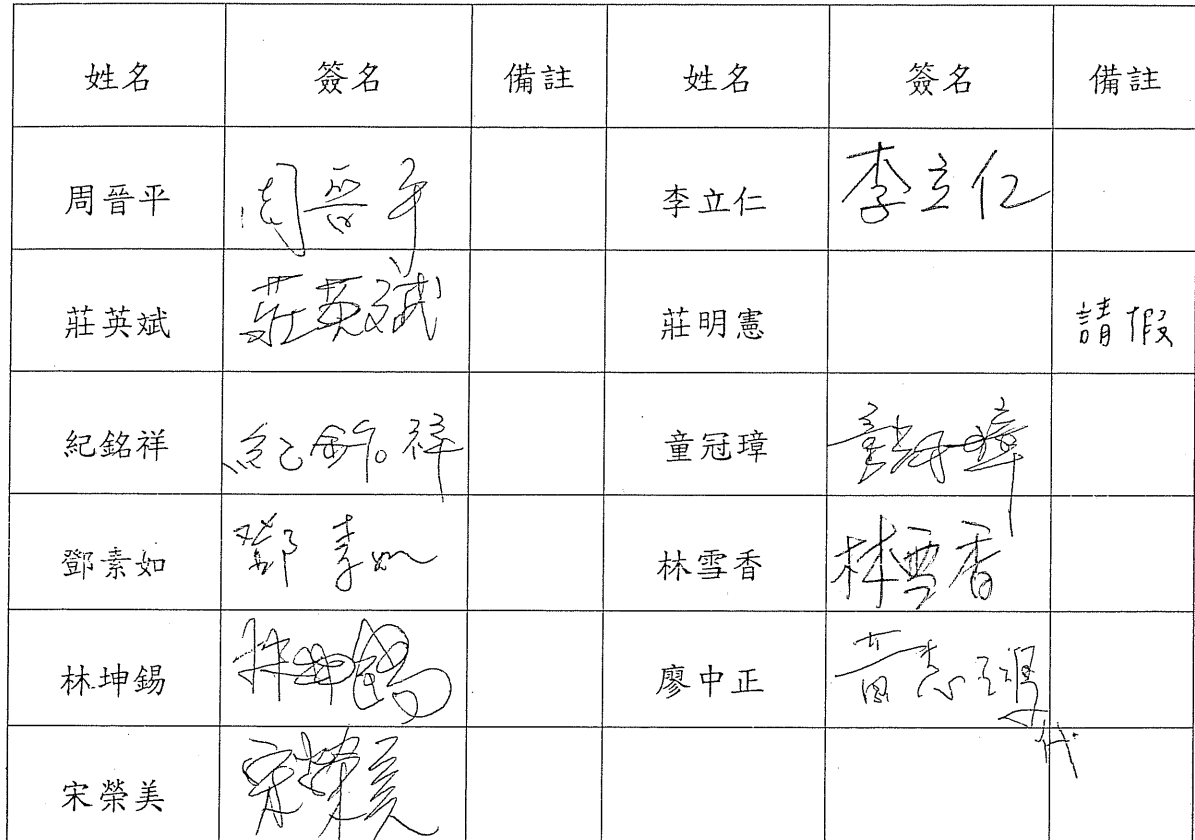 姓名 簽名 備註 姓名 簽名 備註
周晉平 周晉平 李立仁 李立仁
莊英斌 莊英斌 莊明憲 請假
紀銘祥 紀銘祥 童冠璋 童冠璋
鄧素如 鄧素如 林雪香 林雪香
林坤錫 林坤錫 廖中正 代
宋榮美 宋榮美